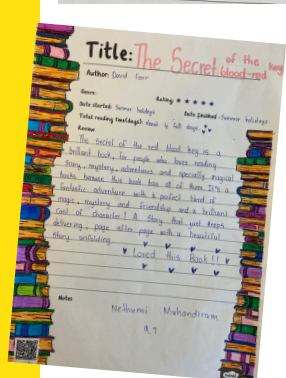 Title: The Secret of the key
blood-red
Author: David Farr
Genre:
Rating: ★ ★ ★ ★ ★
Date started: Summer holidays
Date finished: Summer holidays.
Total reading time(days): About 4 full days
Review
The secret of the red blood key is a
brilliant book, for people who loves reading
story, mystery, adventures and specially magical
books because this book has all of them. It's a
fantastic adventure with a perfect blend of
magic, mystery and friendship and a brilliant
Cast of character! A Story that just keeps
delivering, page after page with a beautiful
Story unfolding.
♥ Loved this Book!! ♥
Notes
Nethumi Muhandiram
9,9